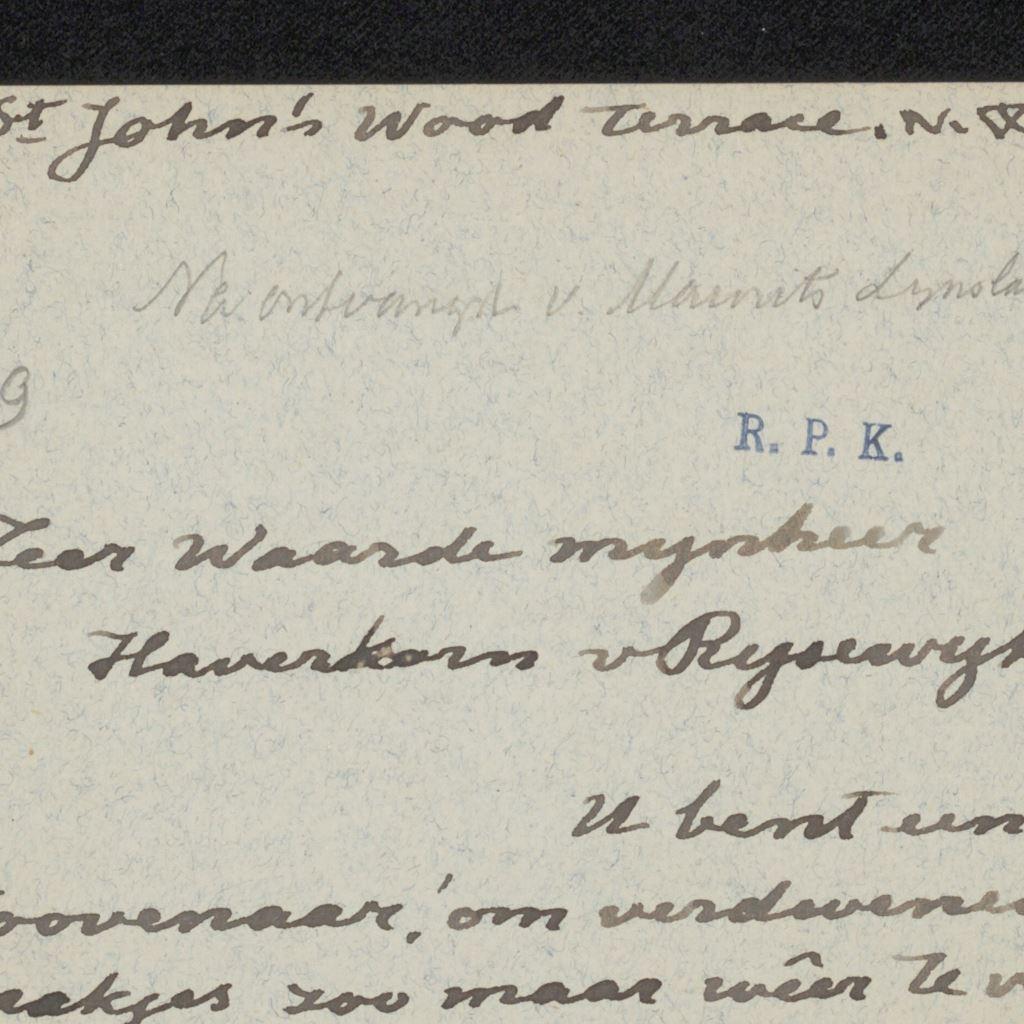 St John's Wood Terrace. N.W
Na ontvangst v. Maurits
9
R. P. K.
Zeer Waarde mynheer
Haverkorn v Rysewyk
U bent een
toovenaar, om verdwenen
zoo maar wêer te v